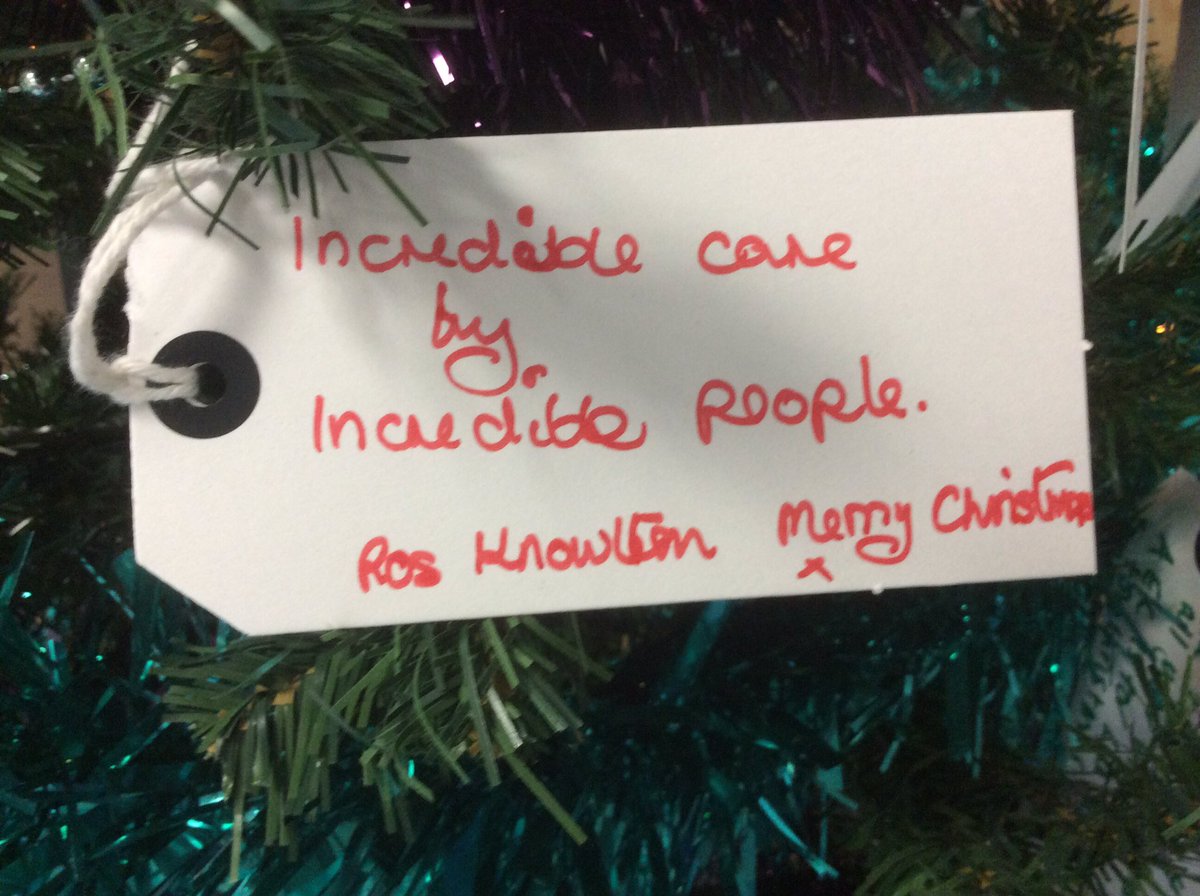 Incredible care
by
Incredible people.
Ros Knowlton Merry Christmas
x